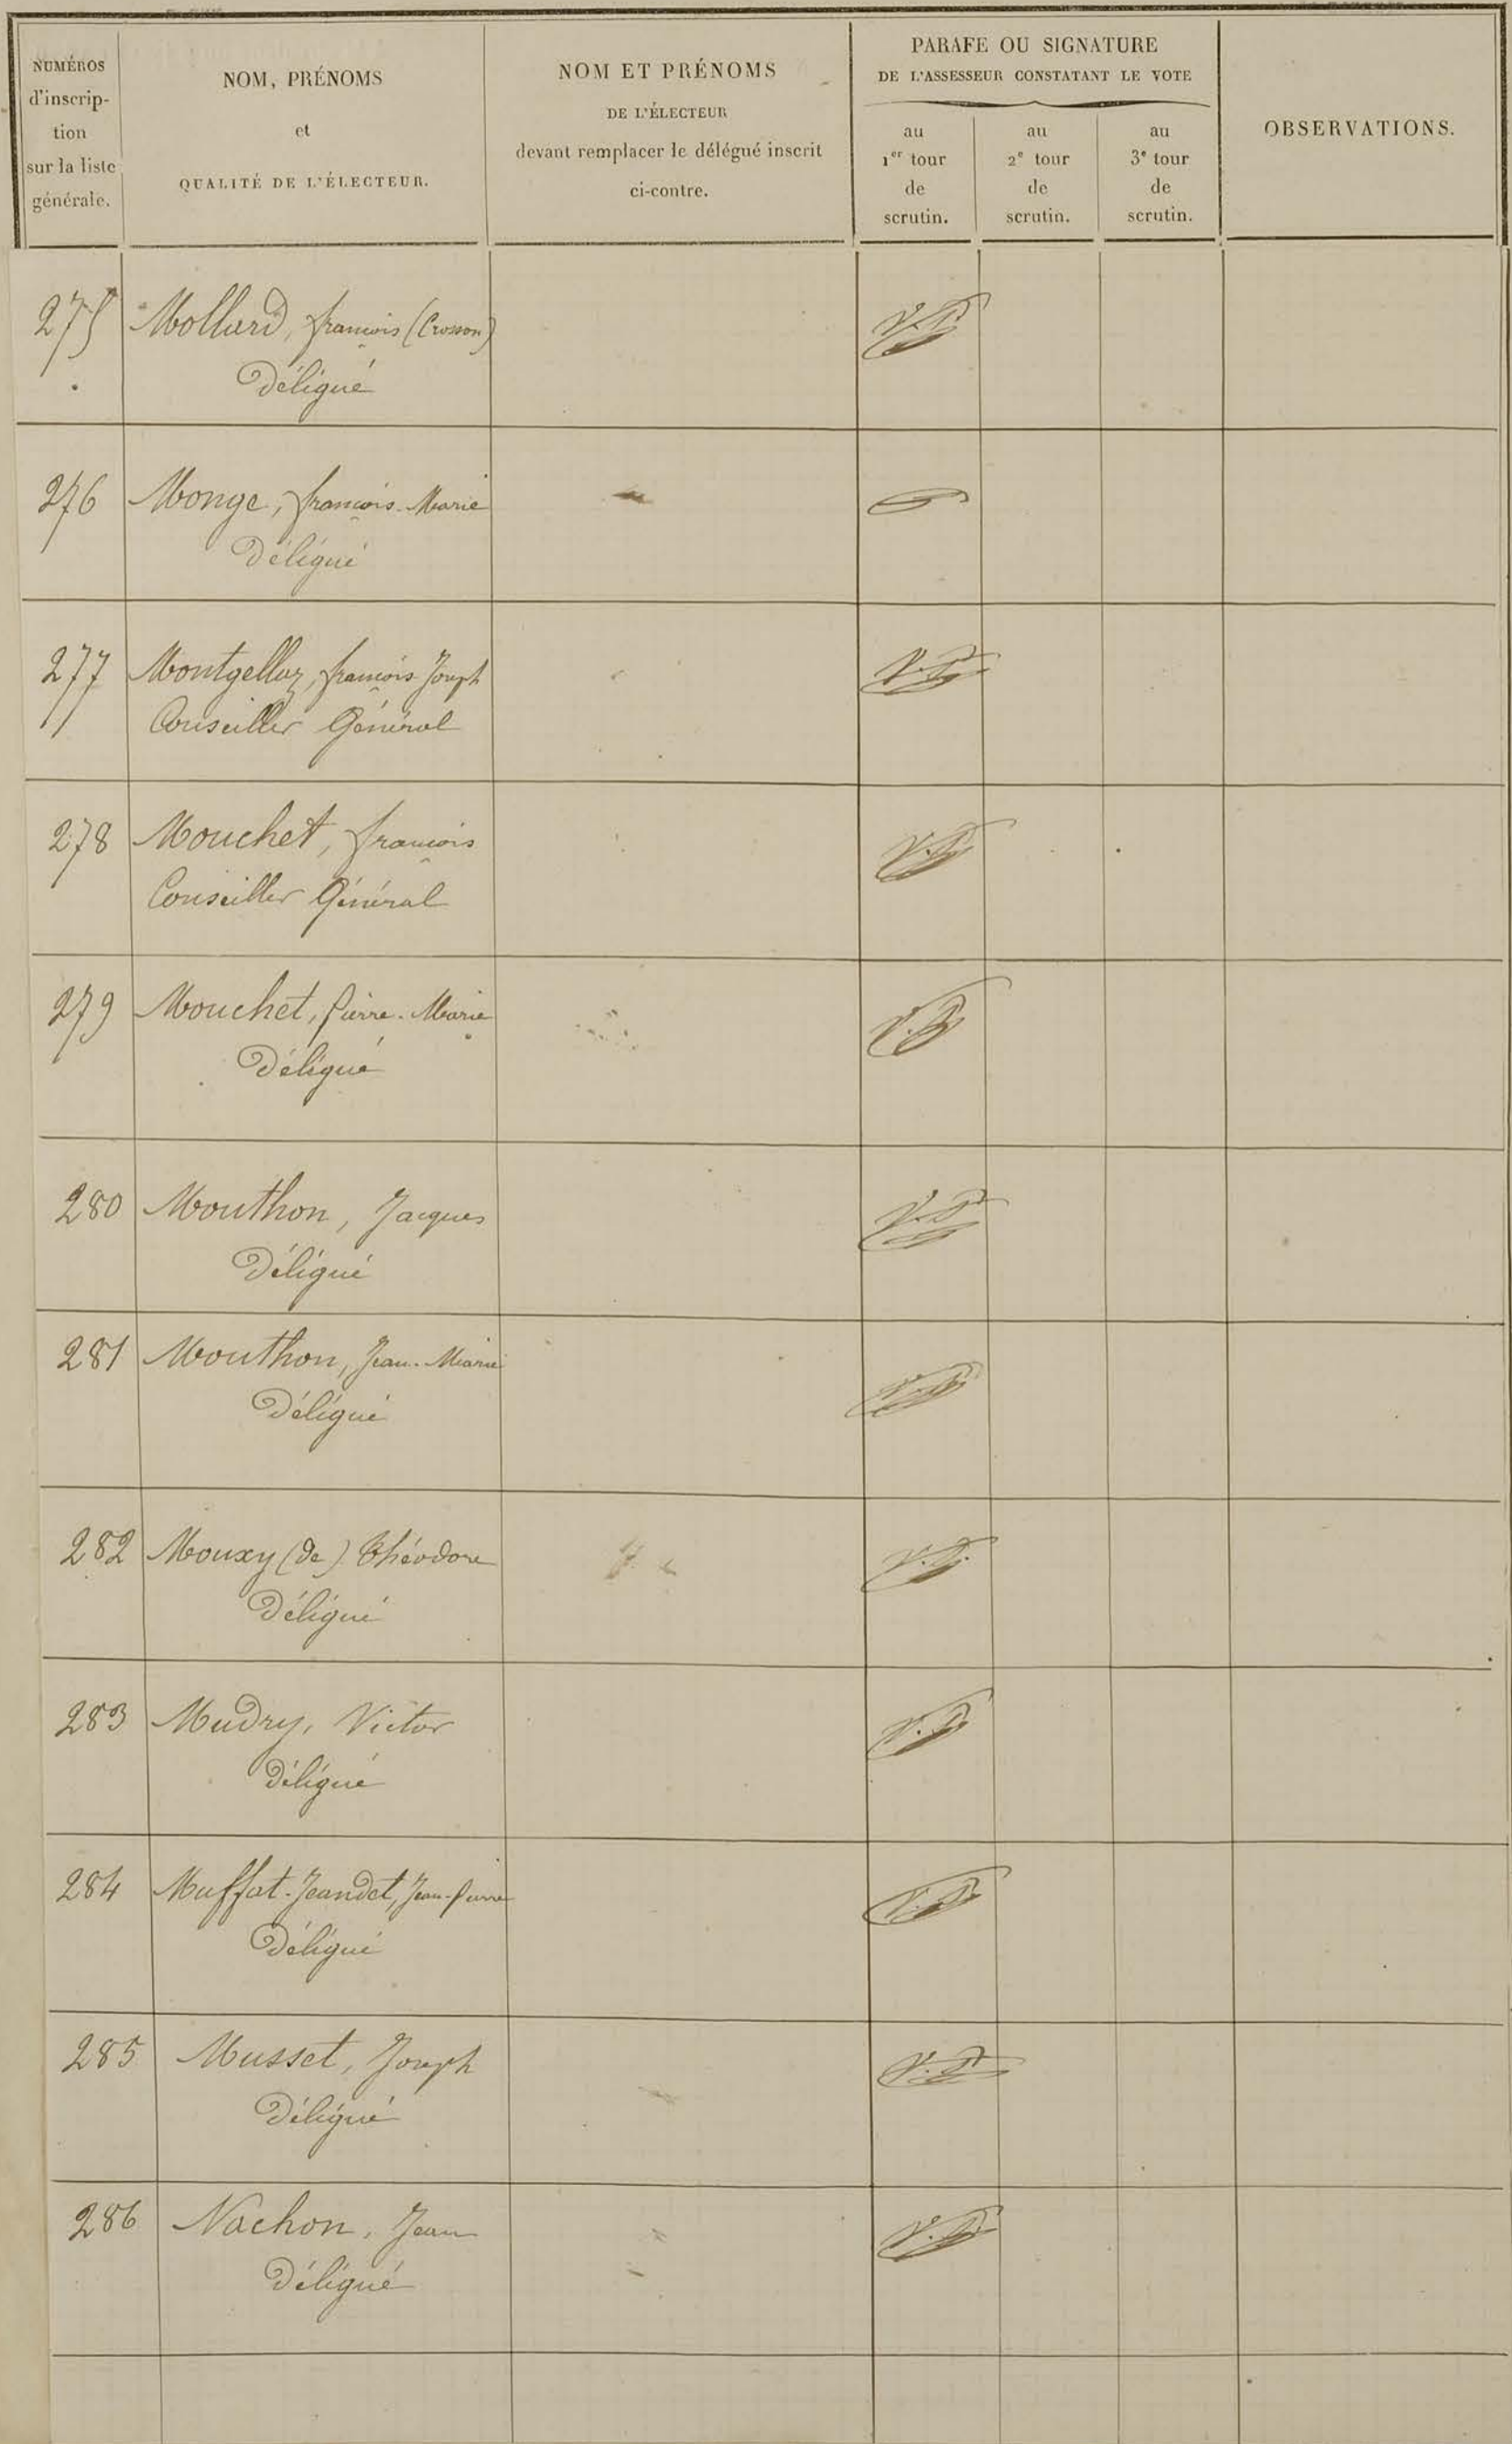 NUMÉROS
d'inscrip-
tion
sur la liste
générale.
NOM, PRÉNOMS
et
QUALITÉ DE L'ÉLECTEUR.
NOM ET PRÉNOMS
DE L'ÉLECTEUR
devant remplacer le délégué inscrit
ci-contre.
PARAFE OU SIGNATURE
DE L'ASSESSEUR CONSTATANT LE VOTE
au
1er tour
de
scrutin.
au
2e tour
de
scrutin.
au
3e tour
de
scrutin.
OBSERVATIONS.
275 Mollard, françois (Crosson)
Délégué
276 Monge, françois-Marie
Délégué
277 Montgellaz, françois Joseph
Conseiller Général
278 Mouchet, françois
Conseiller Général
279 Mouchet, Pierre-Marie
Délégué
280 Mouthon, Jacques
Délégué
281 Mouthon, Jean-Marie
Délégué
282 Mouxy (de) Théodore
Délégué
283 Mudry, Victor
Délégué
284 Muffat-Jeandet, Jean-Pierre
Délégué
285 Musset, Joseph
Délégué
286 Nachon, Jean
Délégué